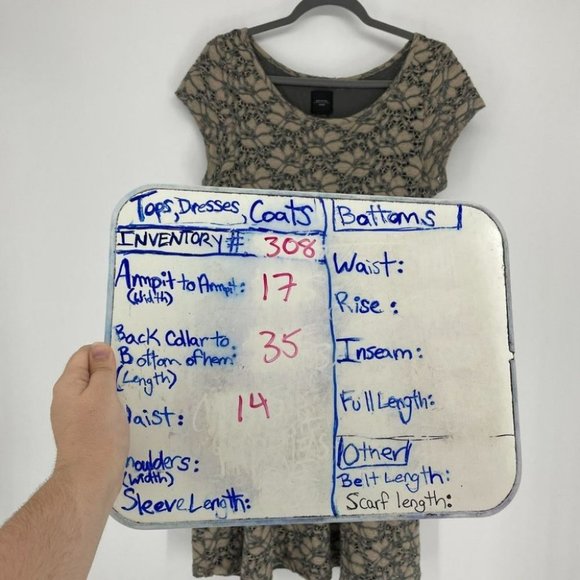 Tops, Dresses, Coats
INVENTORY # 308
Armpit to Armpit: 17
(Width)
Back Collar to 35
Bottom of hem:
(Length)
Waist: 14
Shoulders:
(Width)
Sleeve Length:
Bottoms
Waist:
Rise:
Inseam:
Full Length:
Other
Belt Length:
Scarf length: